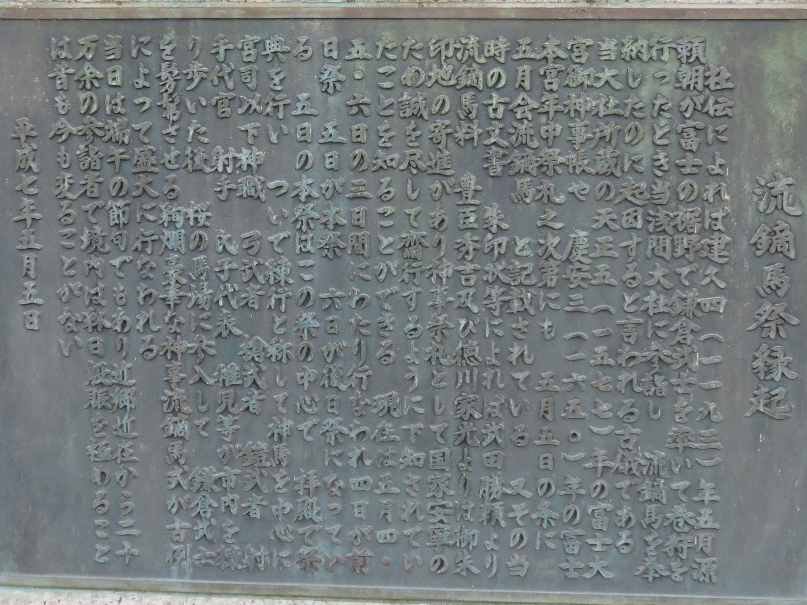 流鏑馬祭縁起
社伝によれば建久四(一一九三)年五月源
頼朝が冨士の裾野で鎌倉武士を率いて巻狩を
行ったとき当浅間大社に参詣し 流鏑馬を奉
納したのに起因すると言われる古儀である
当大社所蔵の天正五(一五七七)年の富士大
宮御神事帳や 慶安三(一六五〇)年の富士
本宮年中祭礼之次第にも 五月五日の条に
五月会流鏑馬 と記載されている 又その当
時の古文書 朱印状等によれば武田勝頼より
流鏑馬料 豊臣秀吉及び徳川家光よりは御朱
印地の寄進があり神事祭礼として国家安寧の
ため誠を尽して斎行するように下知されてい
たことを知ることができる 現在は五月四・
五・六日の三日間にわたり行なわれ四日が前
日祭 五日が本祭 六日が後日祭になってい
る 五日の本祭はこの祭の中心で 拝殿で祭
典を行い ついで練行と称して神馬を中心に
宮司以下神職 弓武者 槍武者 鎧武者 附
手代宮 射手 氏子代表 稚児等が市内を練
り歩いた後 桜の馬場に参入して 鎌倉武士
を髣髴させる絢爛豪華な神事流鏑馬式が古例
によって盛大に行なわれる
当日は端午の節句でもあり近郷近在から二十
万余の参詣者で境内は終日殷賑を極めること
は昔も今も変ることがない
平成七年五月五日